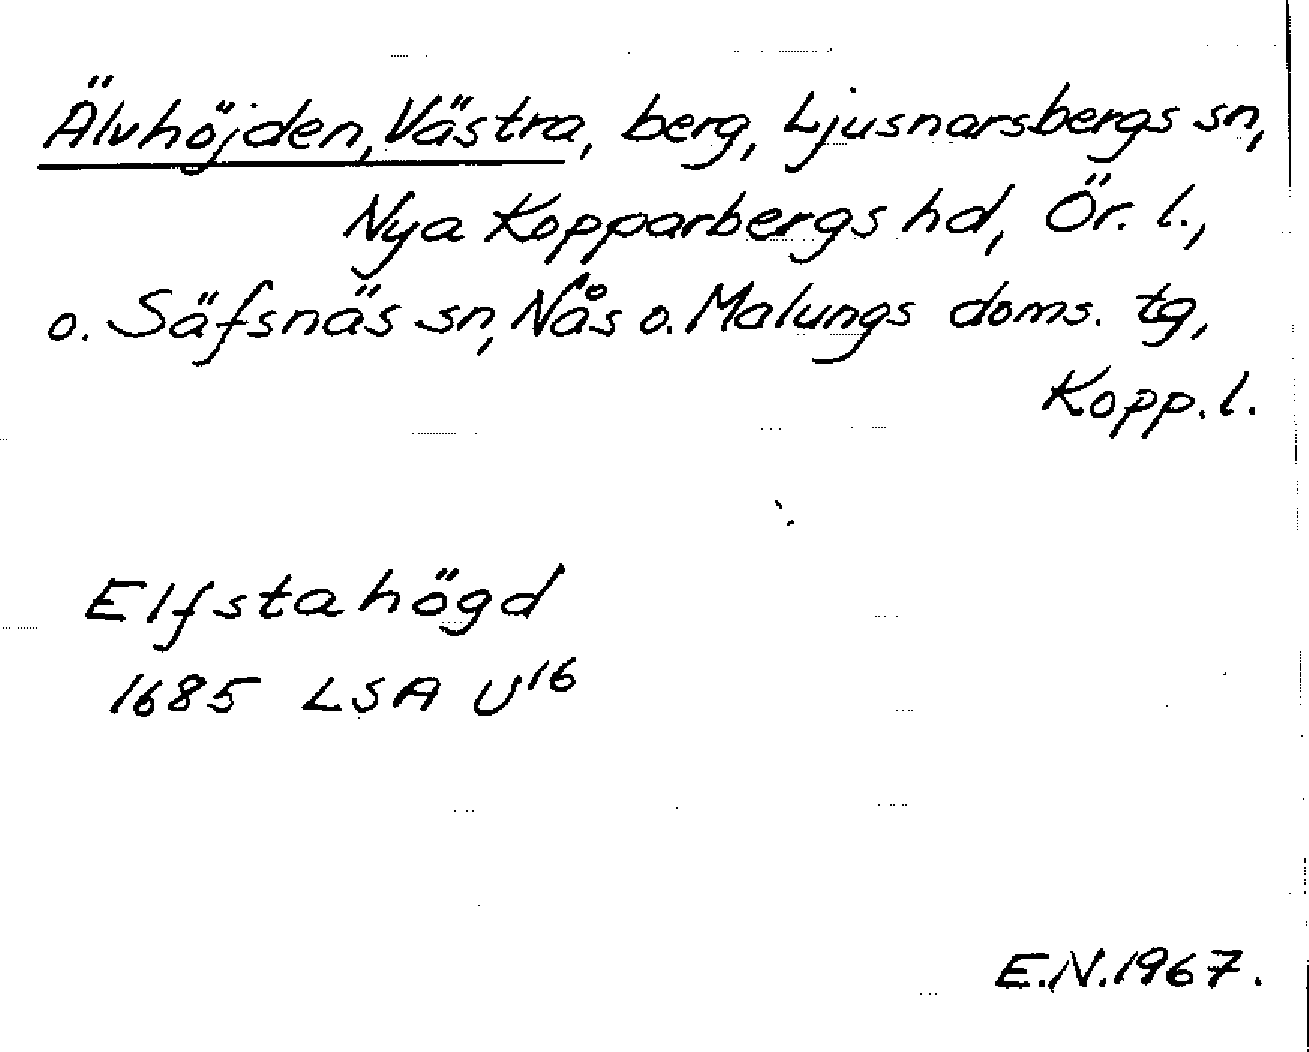 Älvhöjden, Västra, berg, Ljusnarsbergs sn,
Nya Kopparbergs hd, Ör. l.,
o. Säfsnäs sn, Nås o. Malungs doms. tg,
Kopp. l.
Elfstahögd
1685 LSA U16
E.N. 1967.